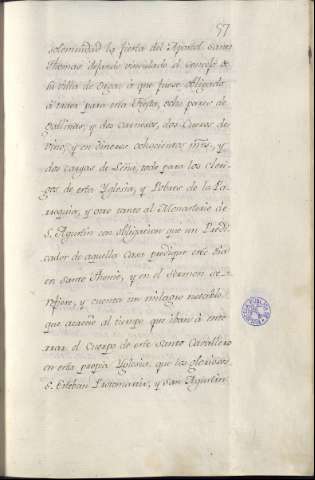 57
solemnidad la fiesta del Apostol Santo
Thomas dejando vinculado el Concejo de
la villa de Orgaz, à que fuese obligado
à traer para esta Fiesta, ocho pares de
gallinas, y dos carneros, dos Cueros de
vino, y en dineros ochocientos mrs, y
dos cargas de Leña, todo para los Cleri-
gos de esta Yglesia, y Pobres de la Pa-
rroquia, y otro tanto al Monasterio de
S. Agustin con obligacion que un Predi-
cador de aquella Casa predique este dia
en Santo Thomè, y en el Sermon se
refiere, y cuenta un milagro notable
que acaeciò al tiempo que iban à ente-
rrar el Cuerpo de este Santo Cavallero
en esta propia Yglesia, que los gloriosos
S. Esteban Protomartir, y San Agustin